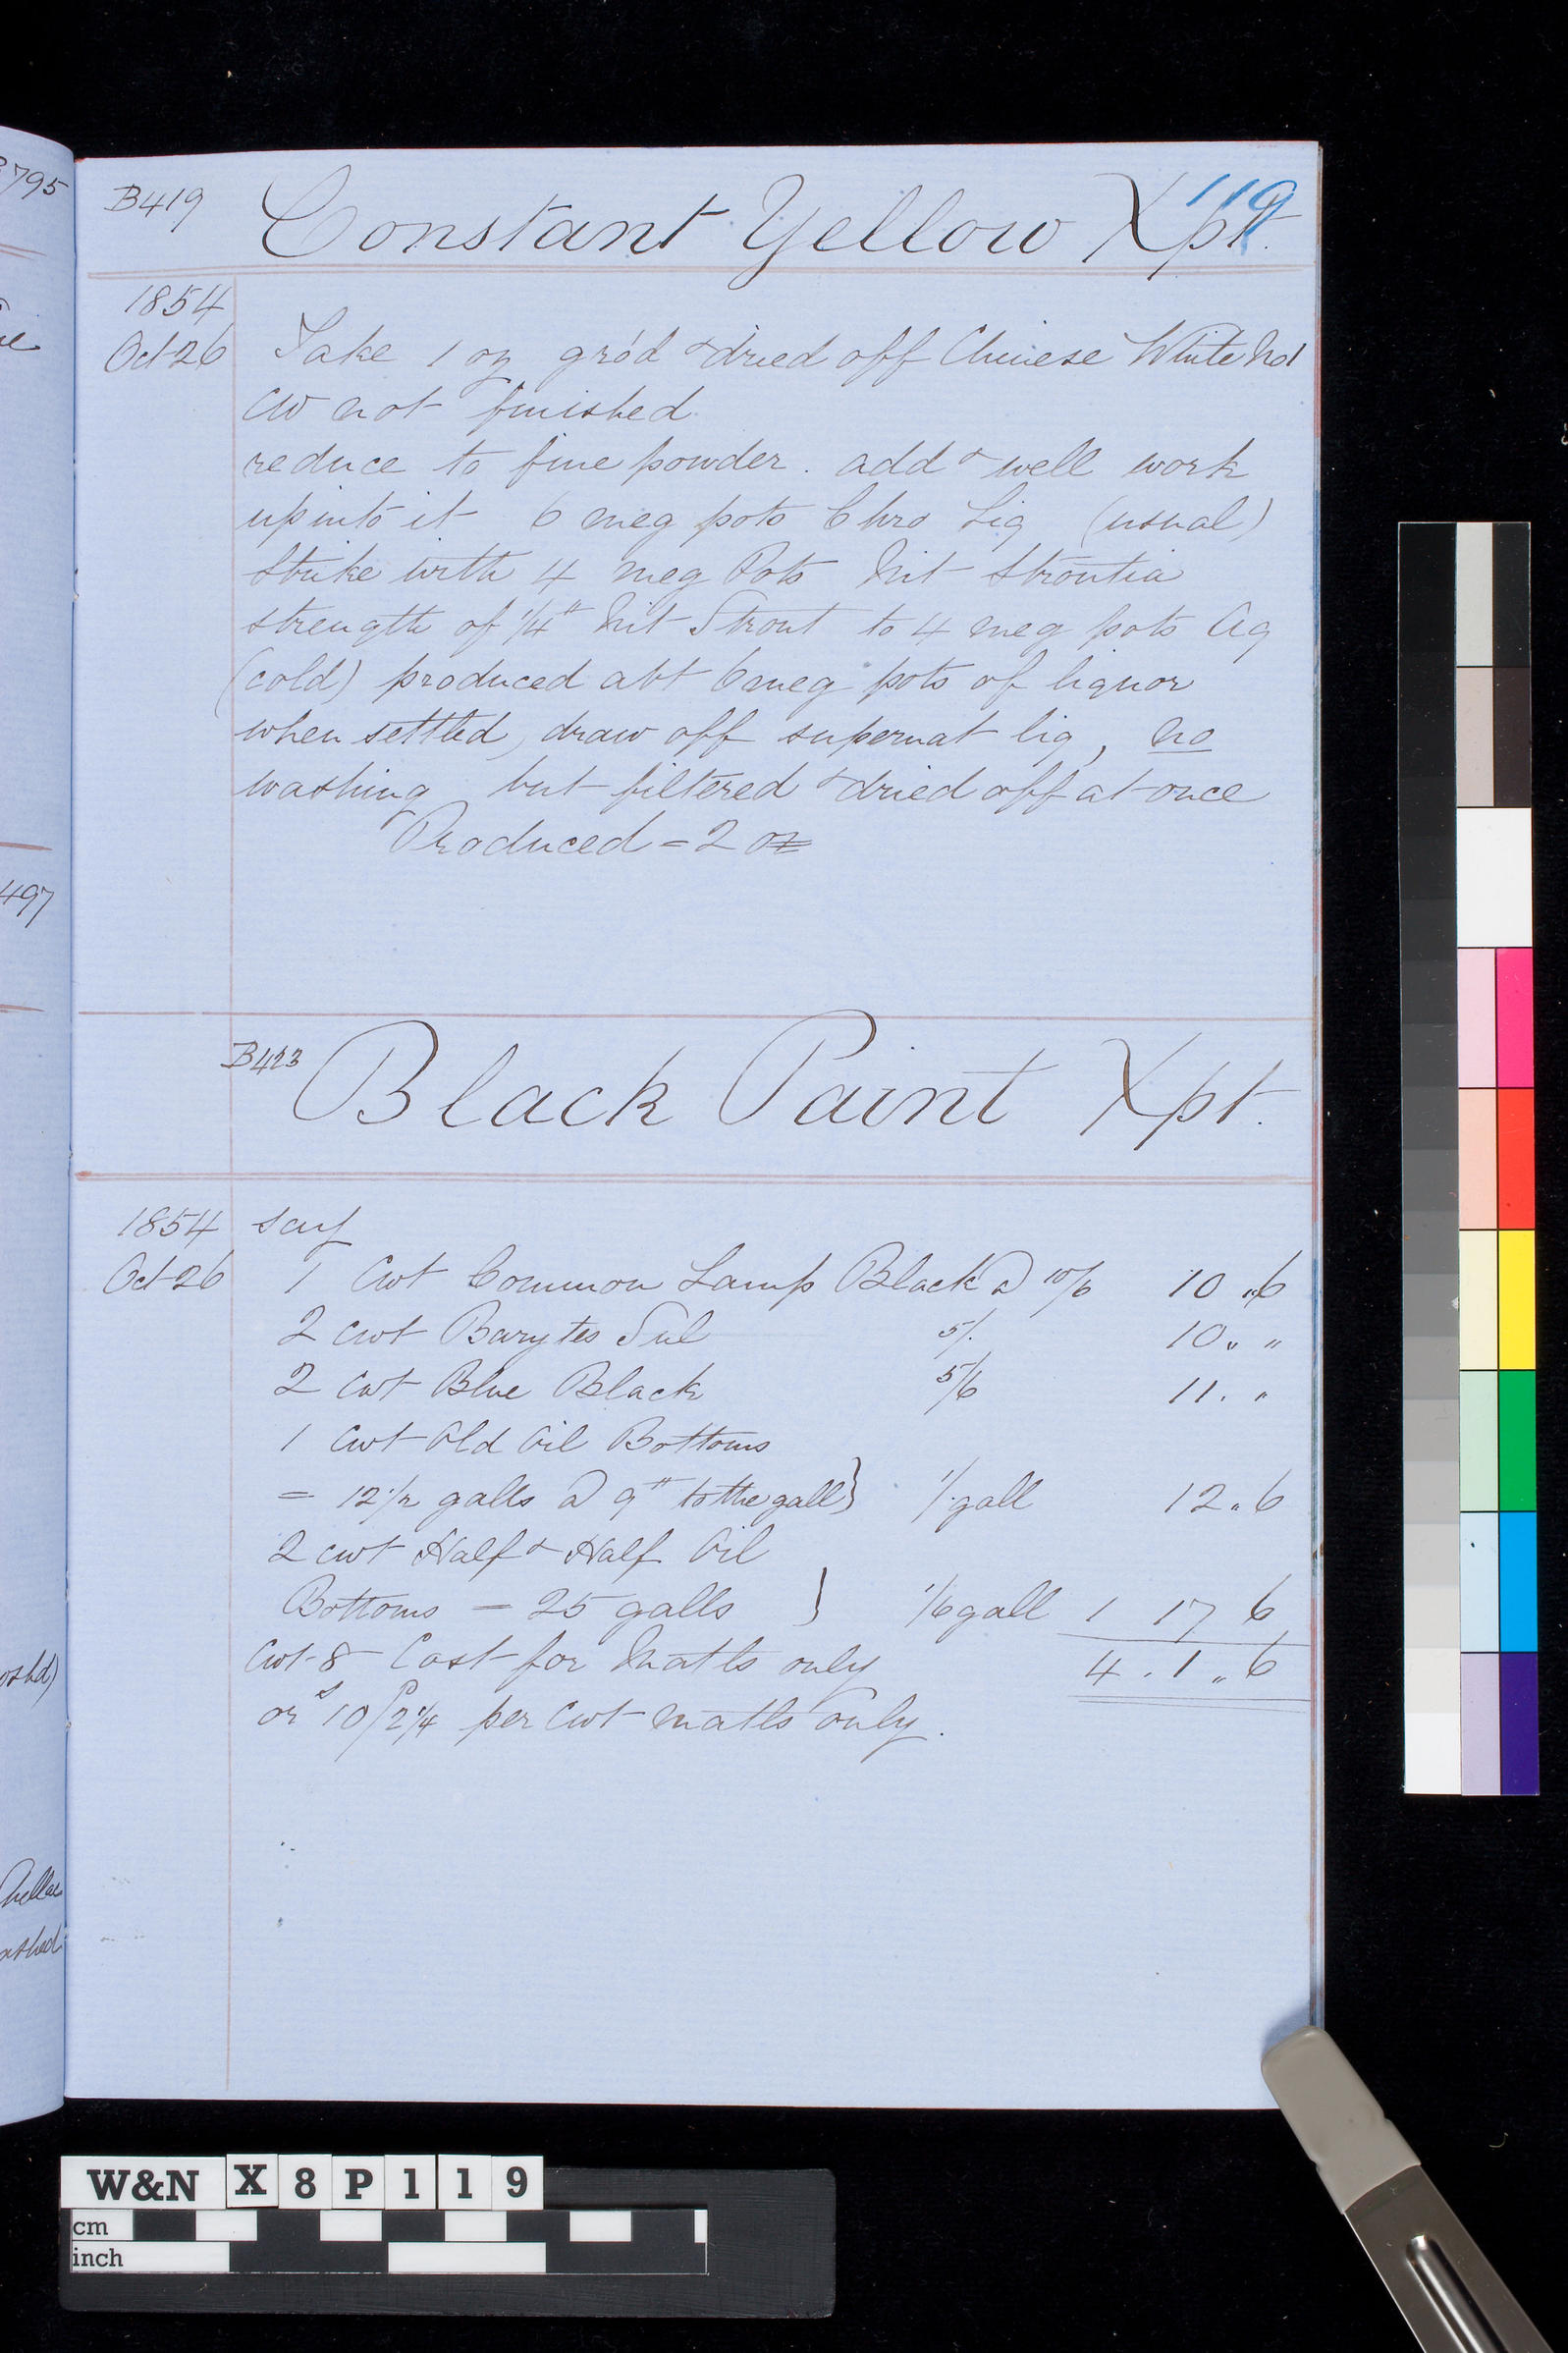 B419 Constant Yellow Xpt. 119
1854
Oct 26 Take 1 oz gro'd & dried off Chinese White No 1
CW not finished
reduce to fine powder. add & well work
up into it 6 meg pots Chro Liq (usual)
Strike with 4 meg Pots Nit Strontia
strength of 1/4 " Nit Stront to 4 meg pots Aq
(cold) produced abt 6 meg pots of liquor
when settled, draw off supernat liq, no
washing but filtered & dried off at once
Produced = 2 oz
B423 Black Paint Xpt.
1854 say
Oct 26 1 Cwt Common Lamp Black @ 10/6 10 „ 6
2 cwt Barytes Sul 5/. 10 „ „
2 cwt Blue Black 5/6 11 . „
1 Cwt Old Oil Bottoms
= 12 1/2 galls @ 9 " to the gall } 1/. gall 12 „ 6
2 cwt Half & Half Oil
Bottoms = 25 galls } 1/6 gall 1 17 6
Cwt 8 Cost for Matls only 4 . 1 „ 6
or s 10/ P 2 1/4 per Cwt matls only.
795
497
W&N X 8 P 1 1 9
cm
inch